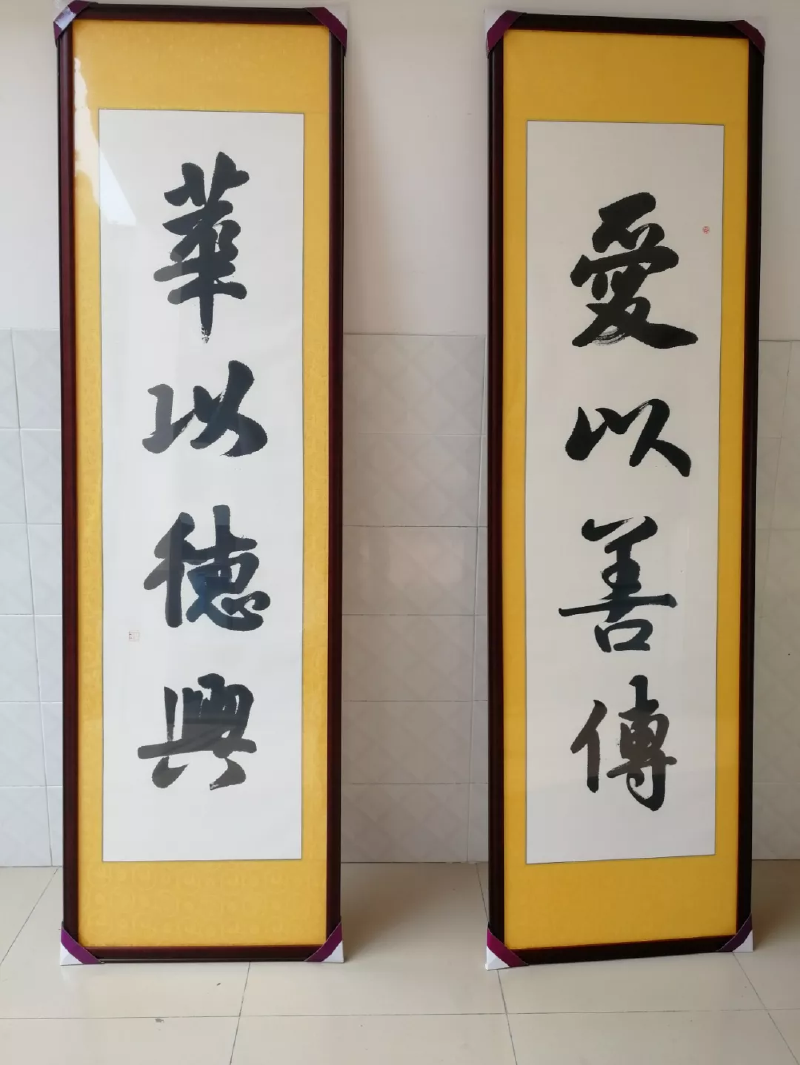 愛以善傳
華以德興